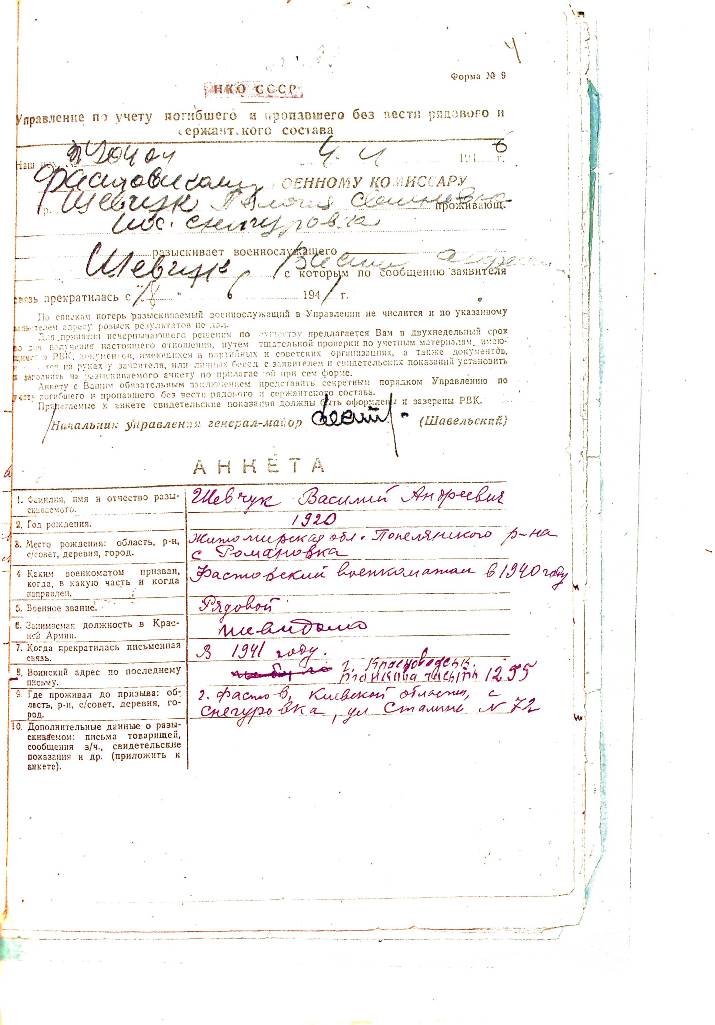 4
Форма № 9
НКО СССР
Управление по учету погибшего и пропавшего без вести рядового и
сержантского состава
Наш 4 194 6 г.
Фастовскому ВОЕННОМУ КОМИССАРУ
Гр. Шевчук проживающ.
пос. Снегуровка
разыскивает военнослужащего
Шевчук с которым по сообщению заявителя
связь прекратилась с " " 6 1941 г.
По спискам потерь разыскиваемый военнослужащий в Управлении не числится и по указанному
заявителем адресу розыск результатов не дал.
Для принятия исчерпывающего решения по существу предлагается Вам в двухнедельный срок
со дня получения настоящего отношения, путем тщательной проверки по учетным материалам, имею-
щимся в РВК, документов, имеющихся в партийных и советских организациях, а также документов,
на руках у заявителя, или личных бесед с заявителем и свидетельских показаний установить
и заполнить на разыскиваемого анкету по прилагаемой при сем форме.
Анкету с Вашим обязательным заключением представить секретным порядком Управлению по
учету погибшего и пропавшего без вести рядового и сержантского состава.
Прилагаемые к анкете свидетельские показания должны быть оформлены и заверены РВК.
Начальник управления генерал-майор (Шавельский)
АНКЕТА
1. Фамилия, имя и отчество разы-
скиваемого.
Шевчук Василий Андреевич
2. Год рождения.
1920
3. Место рождения: область, р-н,
с/совет, деревня, город.
Житомирская обл. Попелянского р-на
с Романовка
4. Каким военкоматом призван,
когда, в какую часть и когда
направлен.
Фастовский военкоматом в 1940 году
5. Военное звание.
Рядовой
6. Занимаемая должность в Крас-
ной Армии.
7. Когда прекратилась письменная
связь.
В 1941 году.
8. Воинский адрес по последнему
письму.
г.
1295
9. Где проживал до призыва: об-
ласть, р-н, с/совет, деревня, го-
род.
г. Фастов, Киевской области, с
Снегуровка, ул Сталина N 72
10. Дополнительные данные о разы-
скиваемом: письма товарищей,
сообщения в/ч., свидетельские
показания и др. (приложить к
анкете).